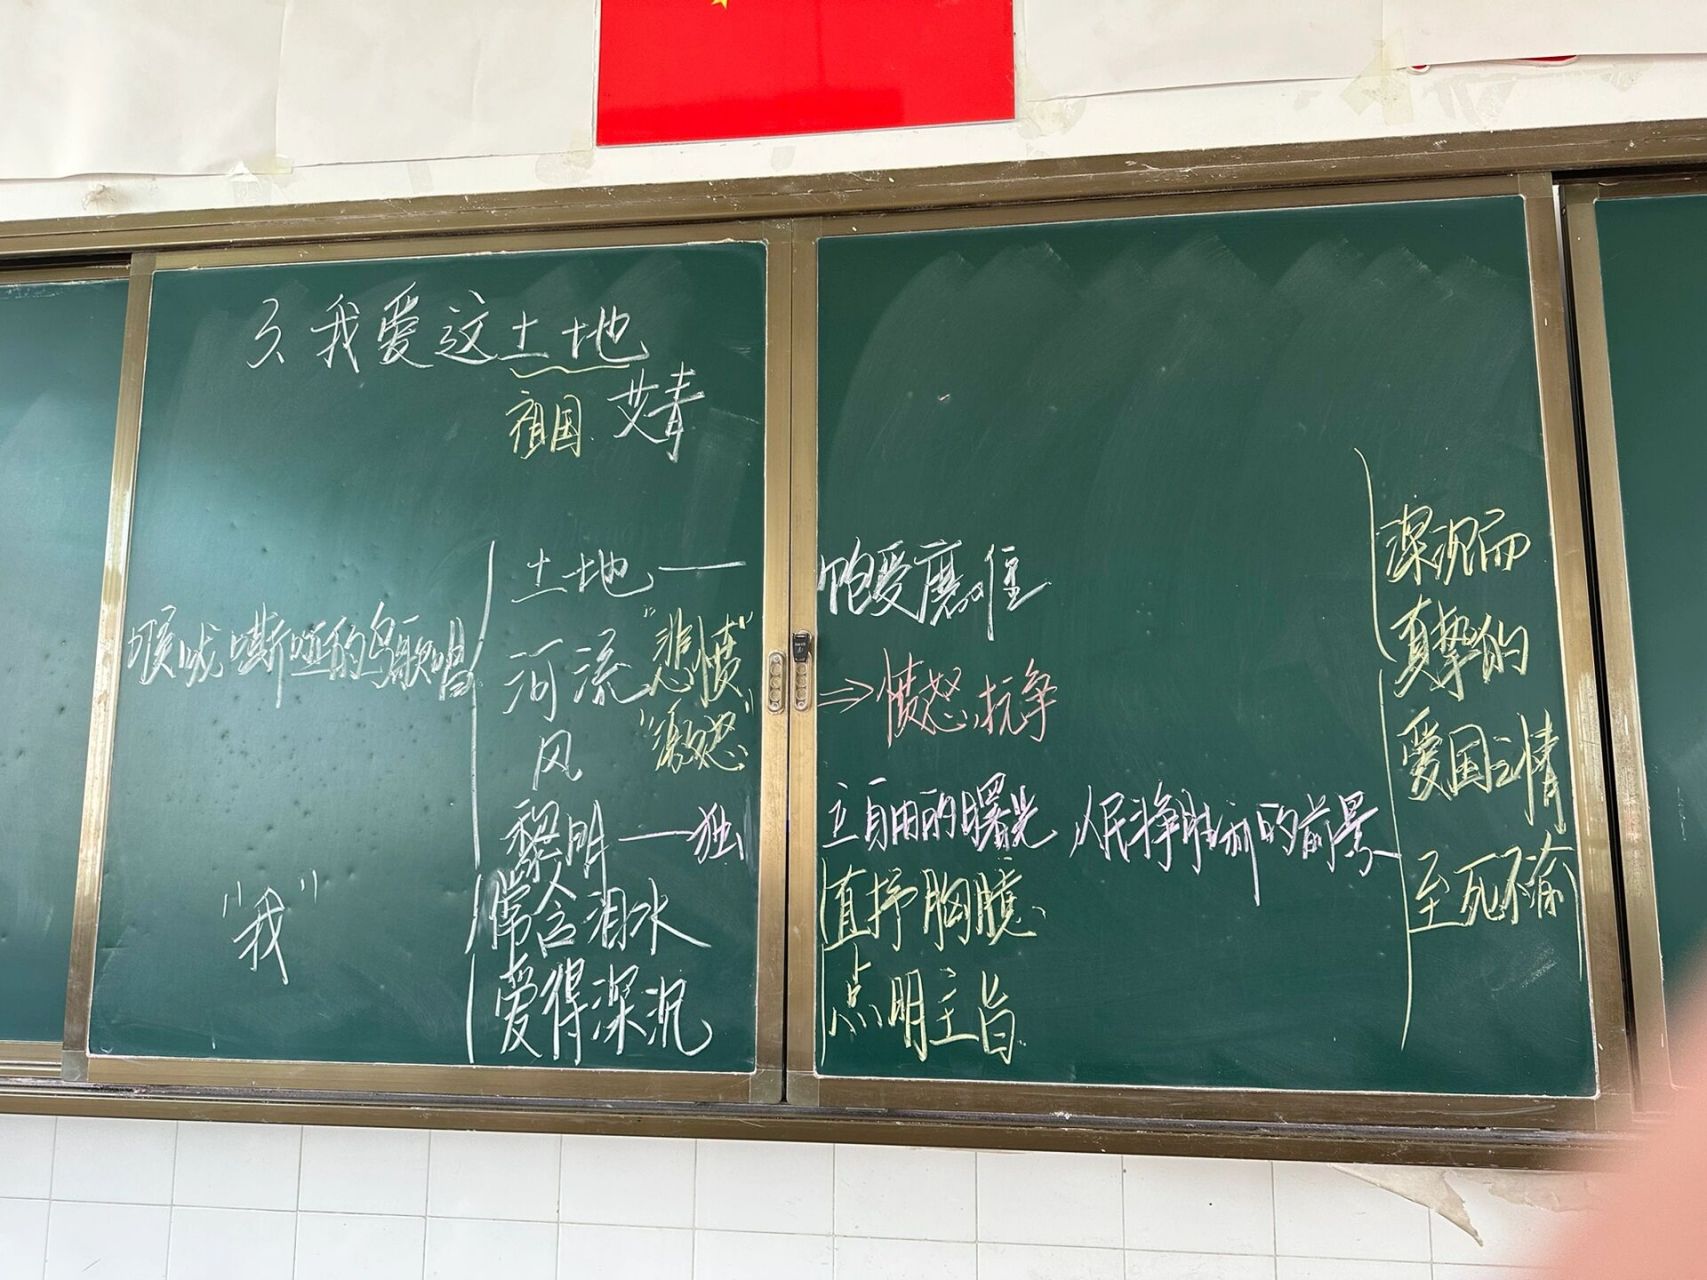 3、我爱这土地
祖国 艾青
土地—— 饱受磨难
喉咙嘶哑的鸟歌唱
河流 "悲愤" ⇒愤怒、抗争
风 "激怒"
黎明——独立自由的曙光 人民斗争胜利的前景
"我"
常含泪水 直抒胸臆、
爱得深沉 点明主旨
深沉而
真挚的
爱国之情
至死不渝